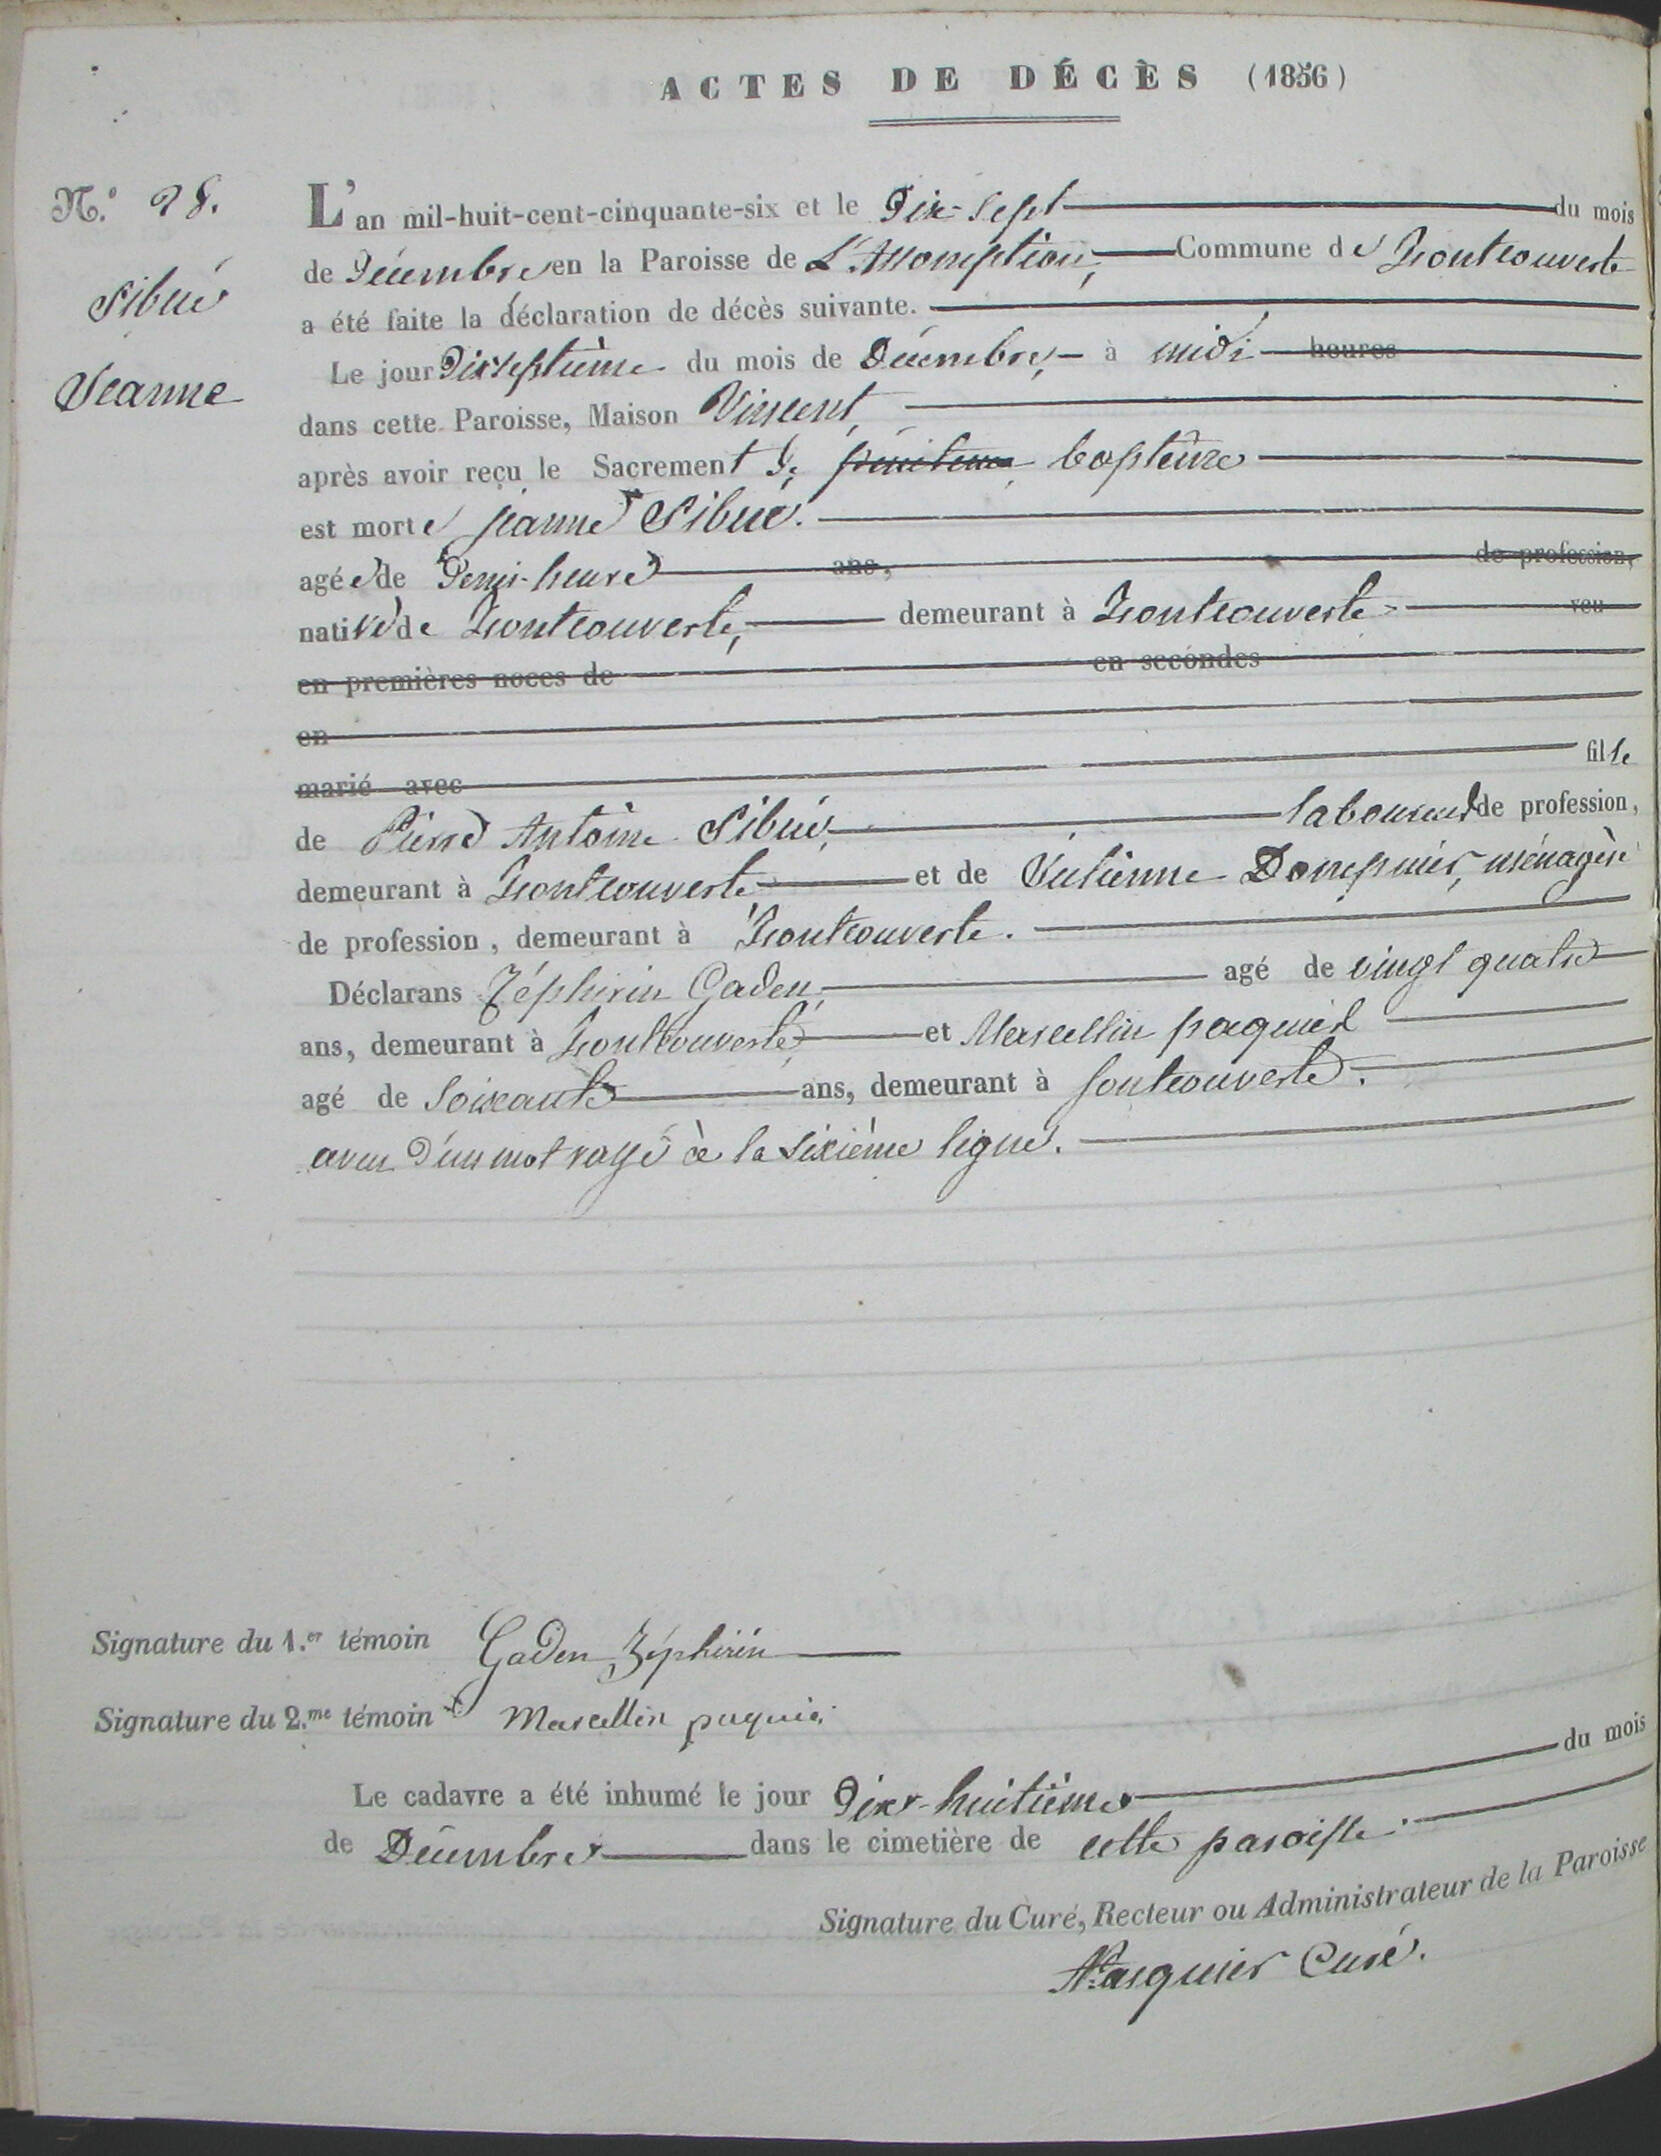 ACTES DE DÉCÈS (1856)
N.º 28.
Sibué
Jeanne
L'an mil-huit-cent-cinquante-six et le Dix-sept du mois
de Décembre en la Paroisse de L'Assomption, Commune de Fontcouverte
a été faite la déclaration de décès suivante.
Le jour Dixseptième du mois de Décembre, à midi heures
dans cette Paroisse, Maison Vincent,
après avoir reçu le Sacrement de pénitence baptême
est morte jeanne Sibué.
agée de Demi-heure ans, de profession,
native de Fontcouverte, demeurant à Fontcouverte veu
en premières noces de en secondes
en
marié avec fille
de Pierre Antoine Sibué, laboureur de profession,
demeurant à Fontcouverte et de Julienne Dompnier, ménagère
de profession, demeurant à Fontcouverte.
Déclarans Zéphirin Gaden, agé de vingt quatre
ans, demeurant à Fontcouverte et Marcellin paquier
agé de Soixante ans, demeurant à fontcouverte.
aveu d'un mot rayé à la sixième ligne.
Signature du 1.er témoin Gaden Zéphirin
Signature du 2.me témoin Marcellin paquié
Le cadavre a été inhumé le jour Dix-huitième du mois
de Décembre dans le cimetière de cette paroisse.
Signature du Curé, Recteur ou Administrateur de la Paroisse
Pasquier Curé.